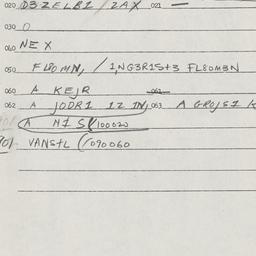 020 DBZELB1 / ZAX 021 —
030 0
060 NEX
050 FL80MN, / 1,NG3R1S+3 FL80M3N
060 A KEJR 061
062 A JODR1 12 IN, 063 A GROJS1 K
A N1S (/100020
901 VANS+L (/090060